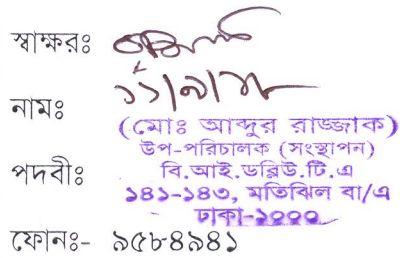 স্বাক্ষরঃ
নামঃ
(মোঃ আব্দুর রাজ্জাক)
উপ-পরিচালক (সংস্থাপন)
পদবীঃ বি.আই.ডব্লিউ.টি.এ
১৪১-১৪৩, মতিঝিল বা/এ
ঢাকা-১০০০
ফোনঃ- ৯৫৮৪৯৪১